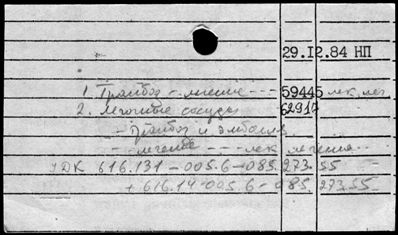 29.12.84 НП
1. Тромбоз - лечение - - - 59445 лек. леч
2. Легочные сосуды 62914
- тромбоз и эмболия
- лечение - - - лек. лечение
УДК 616.131-005.6-085.273.55
+ 616.14-005.6-085.273.55